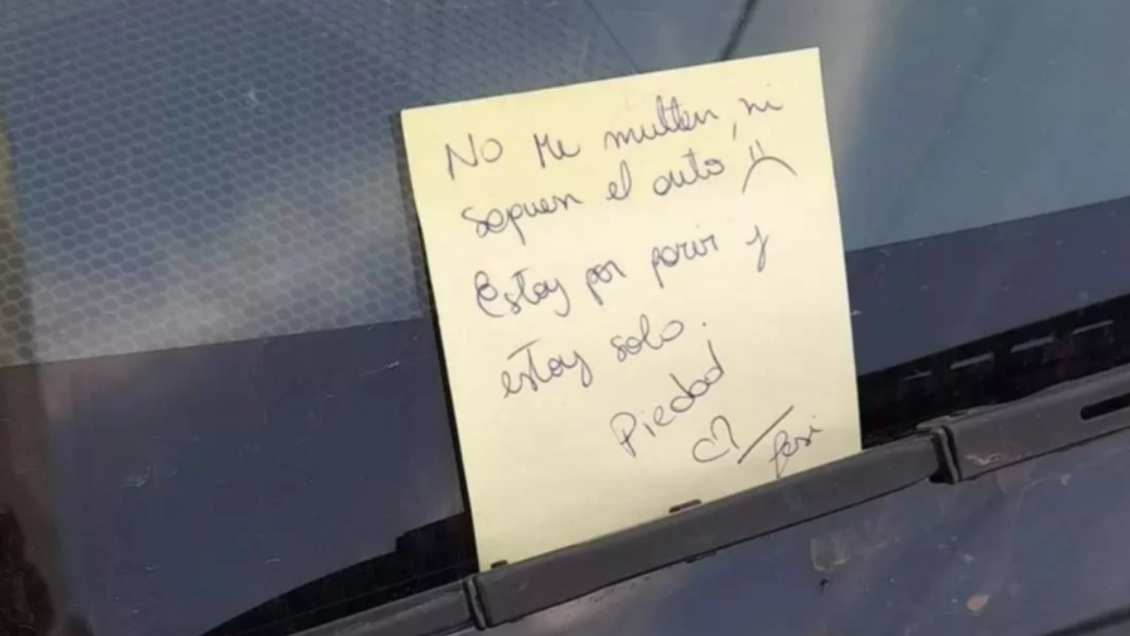 No me multen, ni
saquen el auto
Estoy por parir y
estoy solo.
Piedad